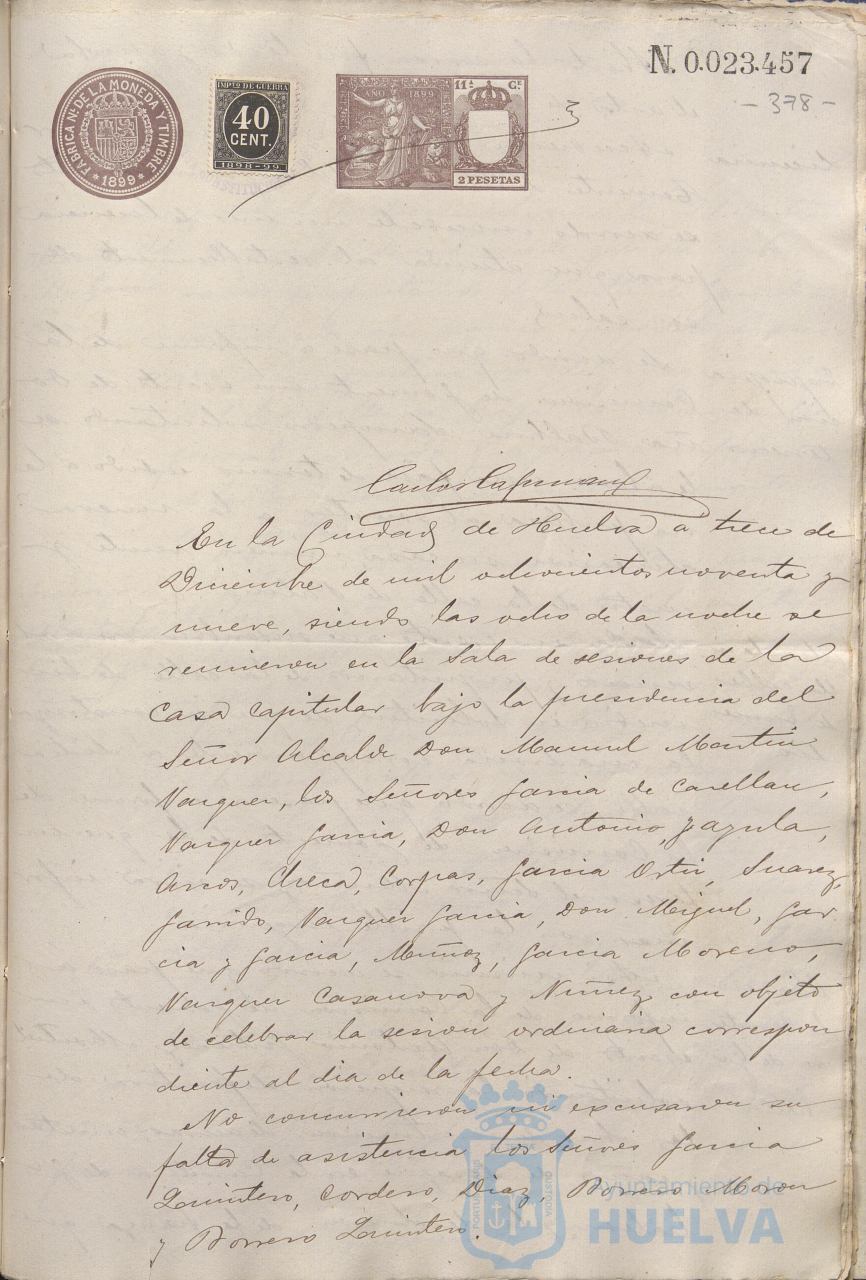 N. 0.023.457
- 378 -
FÁBRICA Nl. DE LA MONEDA Y TIMBRE
* 1899 *
IMPto. DE GUERRA
40
CENT.
1898-99
AÑO 1899
11ª Cª
2 PESETAS
En la Ciudad de Huelva a trece de
Diciembre de mil ochocientos noventa y
nueve, siendo las ocho de la noche se
reunieron en la Sala de sesiones de la
Casa Capitular bajo la presidencia del
Señor Alcalde Don Manuel Martin
Vazquez, los Señores Garcia de Casellan,
Vazquez Garcia, Don Antonio, Jazula,
Arcos, Checa, Corpas, Garcia Ortiz, Suarez,
Garrido, Vazquez Garcia, Don Miguel, Gar
cia y Garcia, Muñoz, Garcia Moreno,
Vazquez Casanova y Nuñez con objeto
de celebrar la sesion ordinaria correspon
diente al dia de la fecha.
No concurrieron ni excusaron su
falta de asistencia los Señores Garcia
Quintero, Cordero, Diaz, Borrero Moron
y Borrero Quintero.
Ayuntamiento de
HUELVA